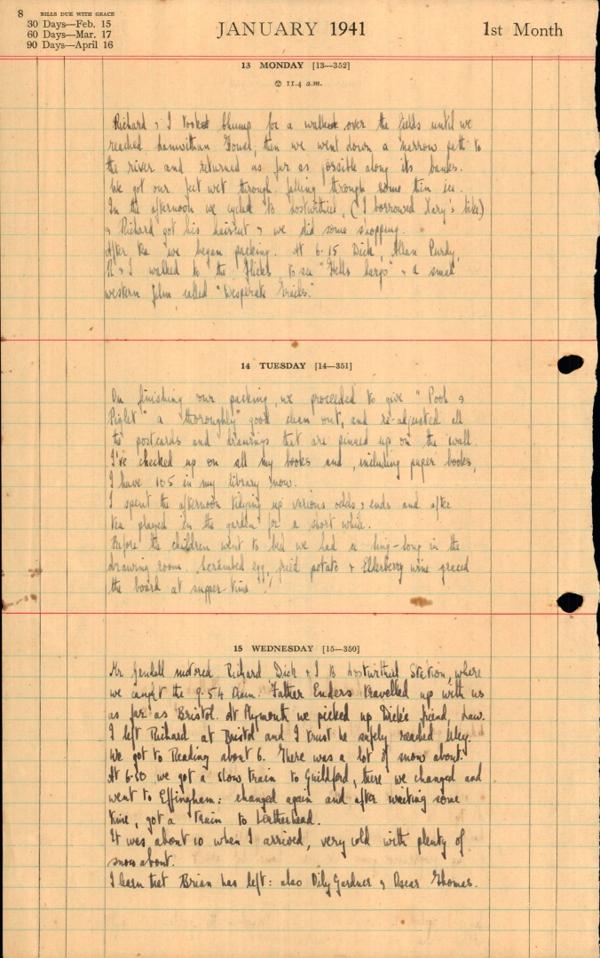 8 BILLS DUE WITH GRACE
30 Days—Feb. 15
60 Days—Mar. 17
90 Days—April 16
JANUARY 1941
1st Month
13 MONDAY [13—352]
11.4 a.m.
Richard & I took for a walk over the fields until we
reached, then we went down a narrow path to
the river and returned as far as possible along its banks.
We got our feet wet through falling through some thin ice.
In the afternoon we cycled to Lostwithiel, (I borrowed bike)
& Richard got his haircut & we did some shopping.
After tea we began packing. At 6.15 Dick, Allan Purdy,
R & I walked to the flicks to see "Hells" & a small
western film called "Desperate Trails."
14 TUESDAY [14—351]
On finishing our packing, we proceeded to give "Pooh &
Piglet" a "thoroughly" good clean out, and re-adjusted all
the postcards and drawings that are pinned up on the wall.
I've checked up on all my books and, including paper books,
I have 105 in my library now.
I spent the afternoon tidying up various odds & ends and after
tea played in the garden for a short while.
Before the children went to bed we had a sing-song in the
drawing room. Scrambled egg, fried potato & Elderberry wine graced
the board at supper-time!
15 WEDNESDAY [15—350]
Mr. Kendall motored Richard Dick & I to Lostwithiel Station, where
we caught the 9.54 train. Father Enders travelled up with us
as far as Bristol. At Plymouth we picked up Dick's friend, Law.
I left Richard at Bristol and I trust he safely reached
We got to Reading about 6. There was a lot of snow about.
At 6-50 we got a slow train to Guildford, there we changed and
went to Effingham: changed again and after waiting some
time, got a train to Leatherhead.
It was about 10 when I arrived, very cold with plenty of
snow about.
I learn that Brian has left: also Gardner & Oscar Thomas.